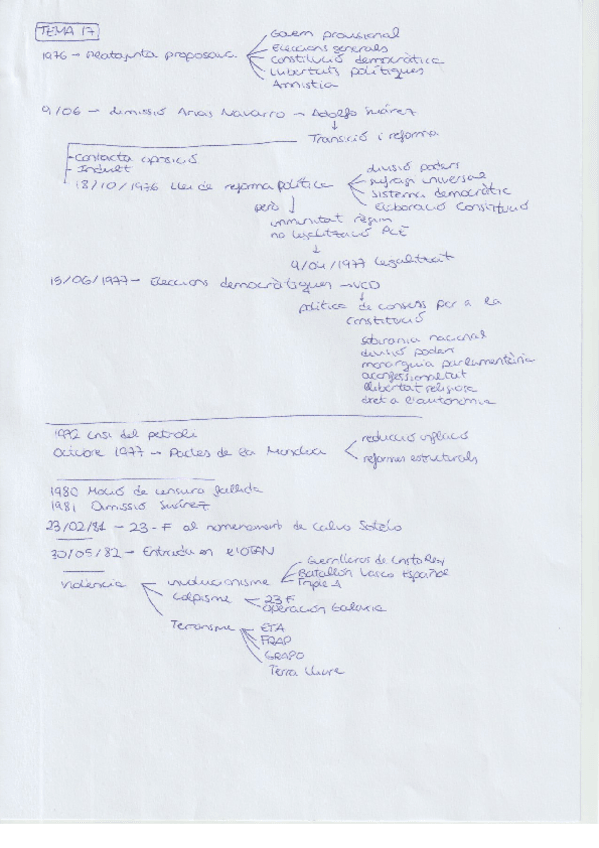 TEMA 17
1976 - Platajunta proposava:
Govern provisional
Eleccions generals
Constitució democràtica
Llibertats polítiques
Amnistia
9/06 - dimissió Arias Navarro → Adolfo Suárez
↓
Transició i reforma
- Contacta oposició
- Indult
- 18/10/1976 Llei de reforma política
divisió poders
sufragi universal
sistema democràtic
Elaboració Constitució
però ↓
immunitat règim
no legalització PCE
↓
9/04/1977 legalitzat
15/06/1977 - Eleccions democràtiques → UCD
↓
política de consens per a la
Constitució
sobirania nacional
divisió poders
monarquia parlamentària
aconfessionalitat
llibertat religiosa
dret a l'autonomia
Crisi del petroli
Octubre 1977 - Pactes de la Moncloa
reducció inflació
reformes estructurals
1980 Moció de censura fallida
1981 Dimissió Suárez
23/02/81 - 23-F al nomenament de Calvo Sotelo
30/05/82 - Entrada en l'OTAN
Violència
involucionisme
Guerrilleros de Cristo Rey
Batallón Vasco Español
Triple A
Colpisme
23 F
Operación Galaxia
Terrorisme
ETA
FRAP
GRAPO
Terra Lliure